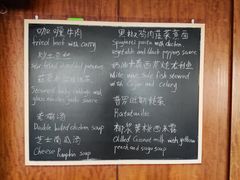 咖喱牛肉
fried beef with curry
炒土豆丝
Stir fried shredded potatoes
Steamed baby cabbage and
glass noodles garlic sauce
老鸡汤
Double boiled chicken soup
芝士南瓜汤
Cheese Pumpkin soup
黑椒鸡肉蔬菜意面
Spaghetti pasta with chicken
vegetable and black peppers sauce
White wine sole fish steamed
with Cajun and celery
Ratatouille
椰浆黄桃西米露
Chilled Coconut milk with yellow
peach and sago soup